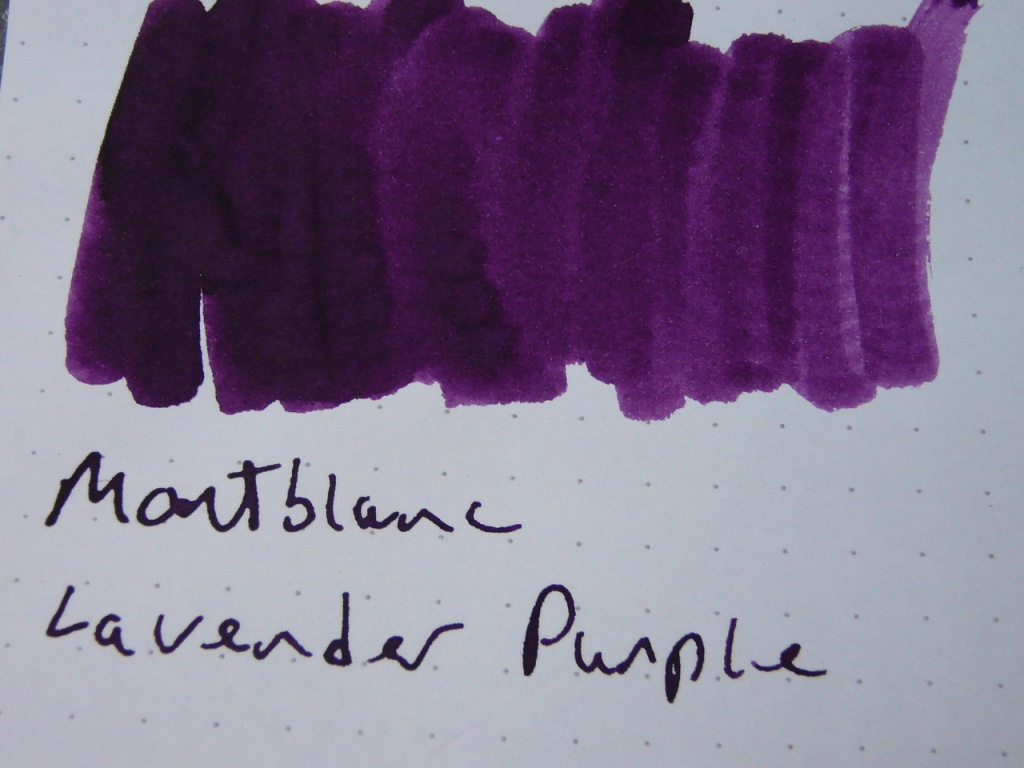 Montblanc
Lavender Purple